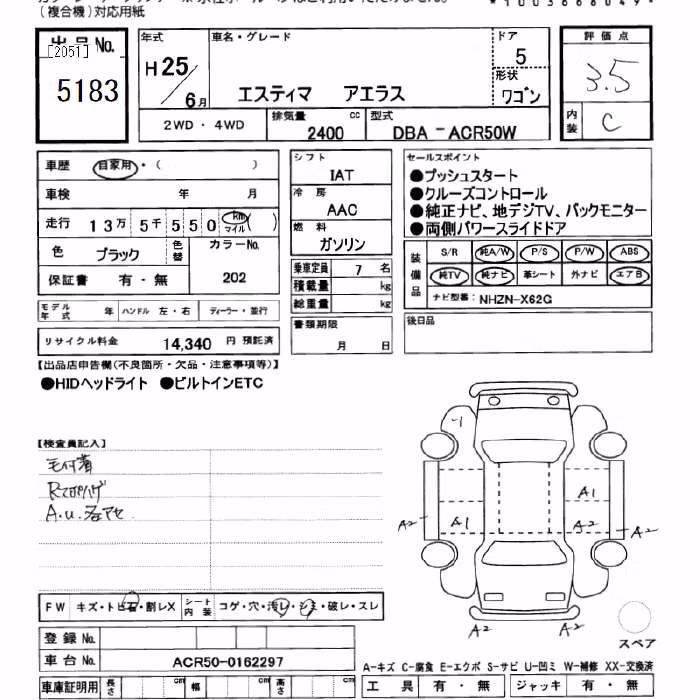 (複合機)対応用紙
*1003668049*
出品No. 年式 車名・グレード ドア 評価点
[2051] 5
5183 H25/6月 エスティマ アエラス 形状 3.5
ワゴン
2WD・4WD 排気量 cc 型式 内装 C
2400 DBA-ACR50W
車歴 自家用・( ) シフト セールスポイント
IAT ●プッシュスタート
車検 年 月 冷房 ●クルーズコントロール
AAC ●純正ナビ、地デジTV、バックモニター
走行 13万5千550 km マイル ( ) 燃料 ●両側パワースライドドア
ガソリン
色 ブラック 色替 カラーNo. 装備品 S/R 純A/W P/S P/W ABS
保証書 有・無 202 乗車定員 7 名 純TV 純ナビ 革シート 外ナビ エアB
積載量 kg
総重量 kg ナビ型番: NHZN-X62G
モデル年式 年 ハンドル 左・右 ディーラー・並行 書類期限 後日品
リサイクル料金 14,340 円 預託済 月 日
【出品店申告欄(不良箇所・欠品・注意事項等)】
●HIDヘッドライト ●ビルトインETC
-1
【検査員記入】
A1
A2 A1 A2 A2
A.U.
FW キズ・トビ石・割レX シート内装 コゲ・穴・汚レ・シミ・破レ・スレ
A2 A2
登録No. スペア
車台No. ACR50-0162297
A-キズ C-腐食 E-エクボ S-サビ U-凹ミ W-補修 XX-交換済
車庫証明用 長さ cm 幅 cm 高さ cm 工具 有・無 ジャッキ 有・無